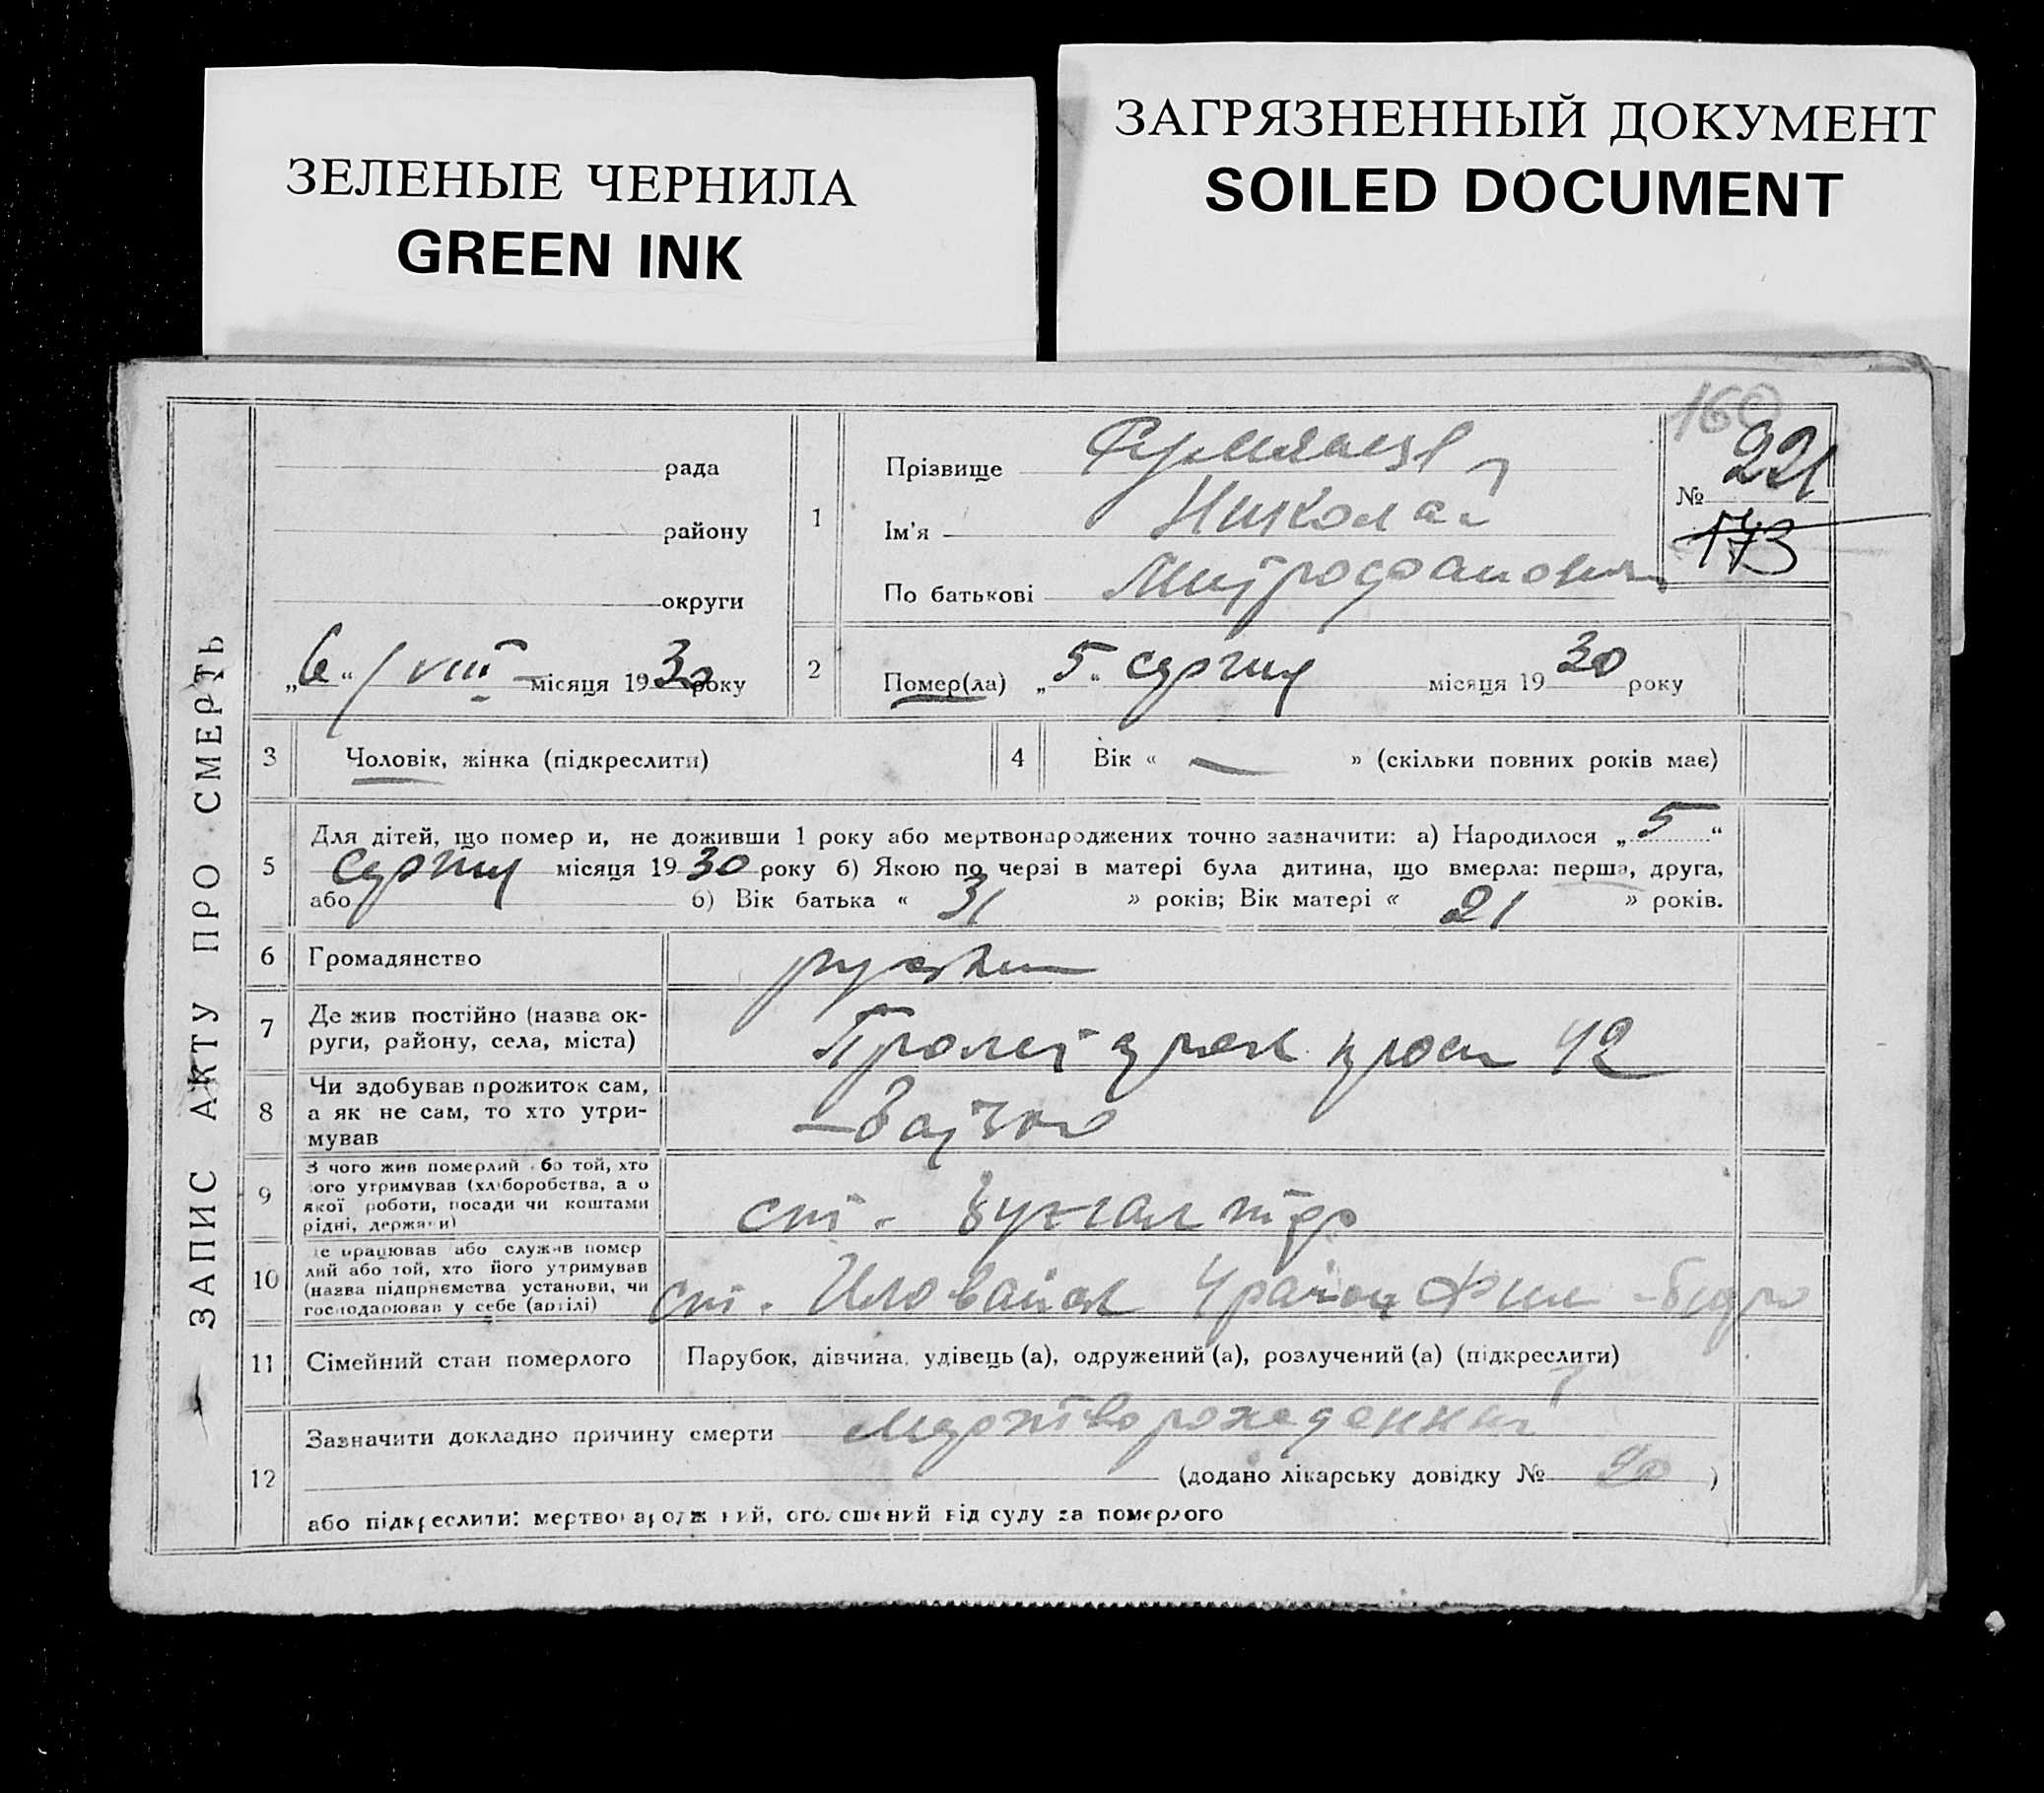 ЗЕЛЕНЫЕ ЧЕРНИЛА
GREEN INK
ЗАГРЯЗНЕННЫЙ ДОКУМЕНТ
SOILED DOCUMENT
160
ЗАПИС АКТУ ПРО СМЕРТЬ
рада
району
округи
„6“ / VIII місяця 1930 року
1
Прізвище
Ім'я Николай
По батькові Митрофанович
№ 221
173
2
Помер(ла) „5“ серпня місяця 1930 року
3 Чоловік, жінка (підкреслити)
4 Вік « — » (скільки повних років має)
5
Для дітей, що помер и, не доживши 1 року або мертвонароджених точно зазначити: а) Народилося „5“
серпня місяця 1930 року б) Якою по черзі в матері була дитина, що вмерла: перша, друга,
або б) Вік батька « 31 » років; Вік матері « 21 » років.
6 Громадянство
7 Де жив постійно (назва ок-
руги, району, села, міста)
42
8 Чи здобував прожиток сам,
а як не сам, то хто утри-
мував
9 З чого жив померлий або той, хто
його утримував (хліборобства, а о
якої роботи, посади чи коштами
рідні, держави)
ст. бухгалтер
10 Де працював або служив помер
лий або той, хто його утримував
(назва підприємства установи, чи
господарював у себе (артілі)
ст. Иловайск
11 Сімейний стан померлого
Парубок, дівчина, удівець (а), одружений (а), розлучений (а) (підкреслити)
12
Зазначити докладно причину смерти мертворожденный
(додано лікарську довідку № )
або підкреслити: мертвонароджений, оголошений від суду за померлого